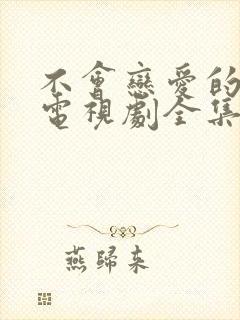 不會戀愛的
電視劇全集
燕歸來